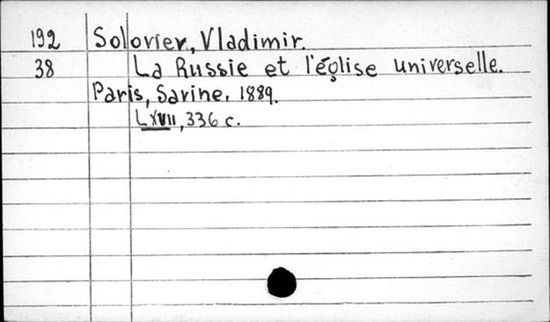 192 Soloviev, Vladimir.
38 La Russie et l'église universelle.
Paris, Savine, 1889.
LXVII, 336 c.